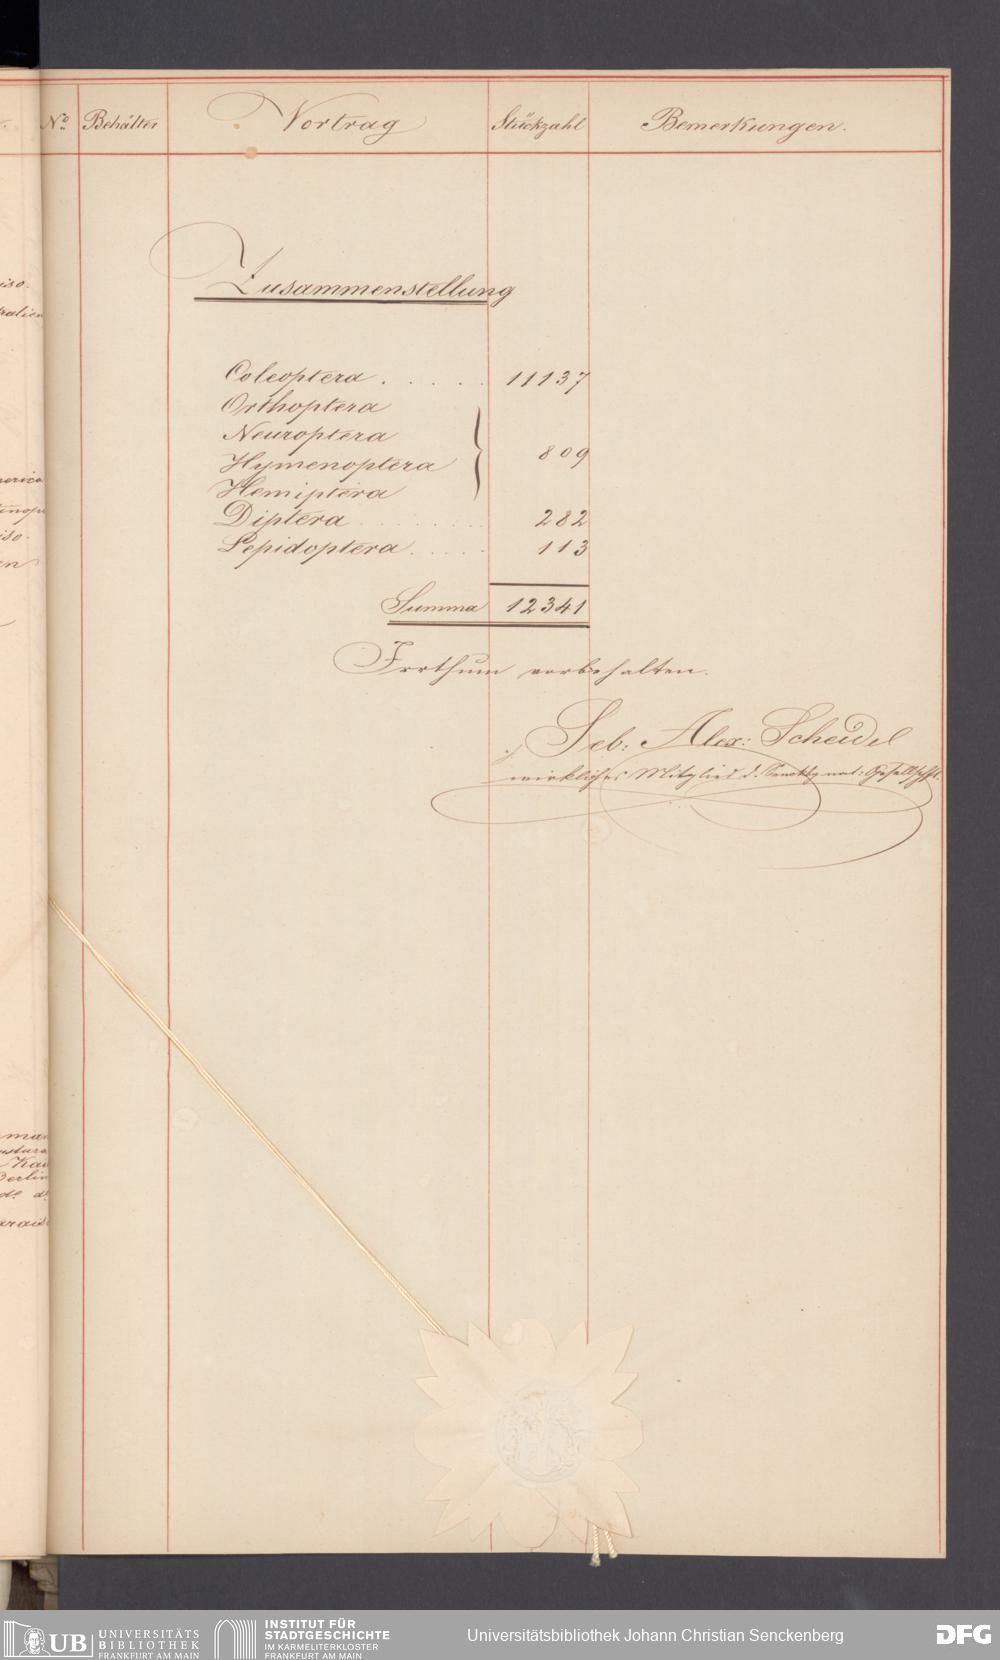 No. Behälter Vortrag Stückzahl Bemerkungen.
Zusammenstellung
Coleoptera . . . . . . 11137
Orthoptera
Neuroptera
Hymenoptera } 809
Hemiptera
Diptera . . . . . . . . 282
Lepidoptera . . . . . 113
Summa 12341
Irrthum vorbehalten.
Seb: Alex: Scheidel
wirkliches Mitglied d. Senckbg nat: Gesellschft.
UB UNIVERSITÄTS
BIBLIOTHEK
FRANKFURT AM MAIN
INSTITUT FÜR
STADTGESCHICHTE
IM KARMELITERKLOSTER
FRANKFURT AM MAIN
Universitätsbibliothek Johann Christian Senckenberg
DFG